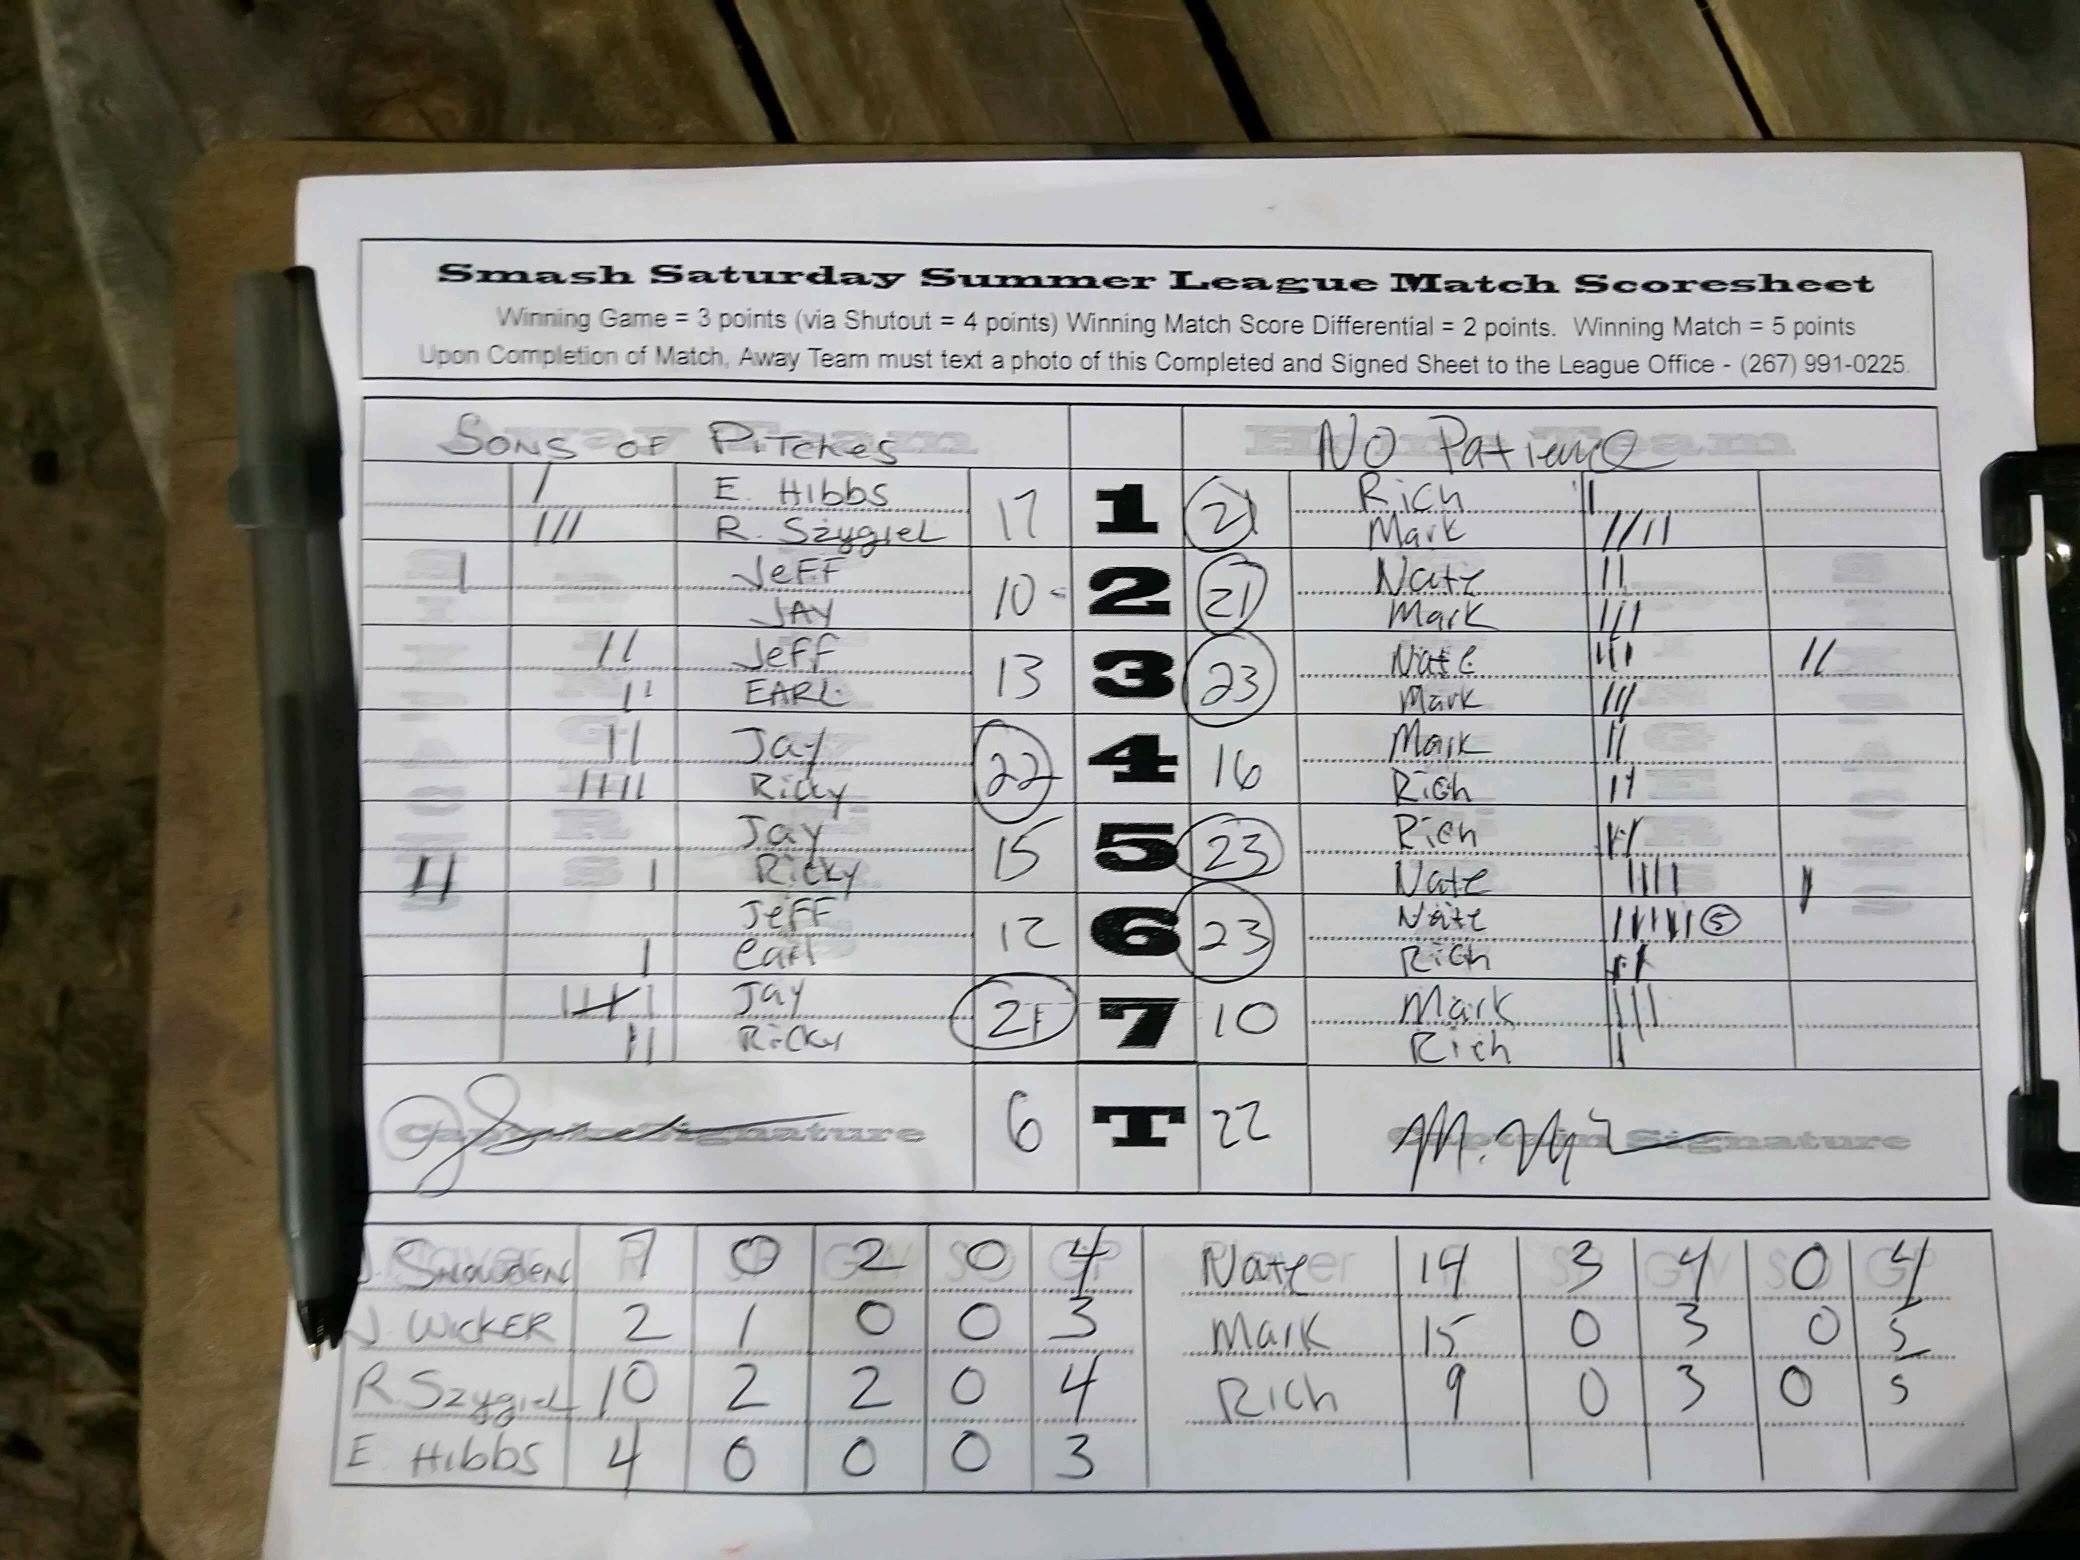 Smash Saturday Summer League Match Scoresheet
Winning Game = 3 points (via Shutout = 4 points) Winning Match Score Differential = 2 points. Winning Match = 5 points
Upon Completion of Match, Away Team must text a photo of this Completed and Signed Sheet to the League Office - (267) 991-0225.
SONS OF PITCHES No Patience
E. HIBBS 17 1 21 Rich
R. SZYGIEL Mark
JEFF 10 2 21 Nate
JAY Mark
JEFF 13 3 23 Nate
EARL Mark
Jay 22 4 16 Mark
Ricky Rich
Jay 15 5 23 Rich
Ricky Nate
JEFF 12 6 23 Nate 5
Earl Rich
Jay 21 7 10 Mark
Ricky Rich
Captain Signature 6 T 22 Captain Signature
J. SNOWDEN 7 0 2 0 4 Nate 14 3 4 0 4
J. WICKER 2 1 0 0 3 Mark 15 0 3 0 5
R. SZYGIEL 10 2 2 0 4 Rich 9 0 3 0 5
E. HIBBS 4 0 0 0 3